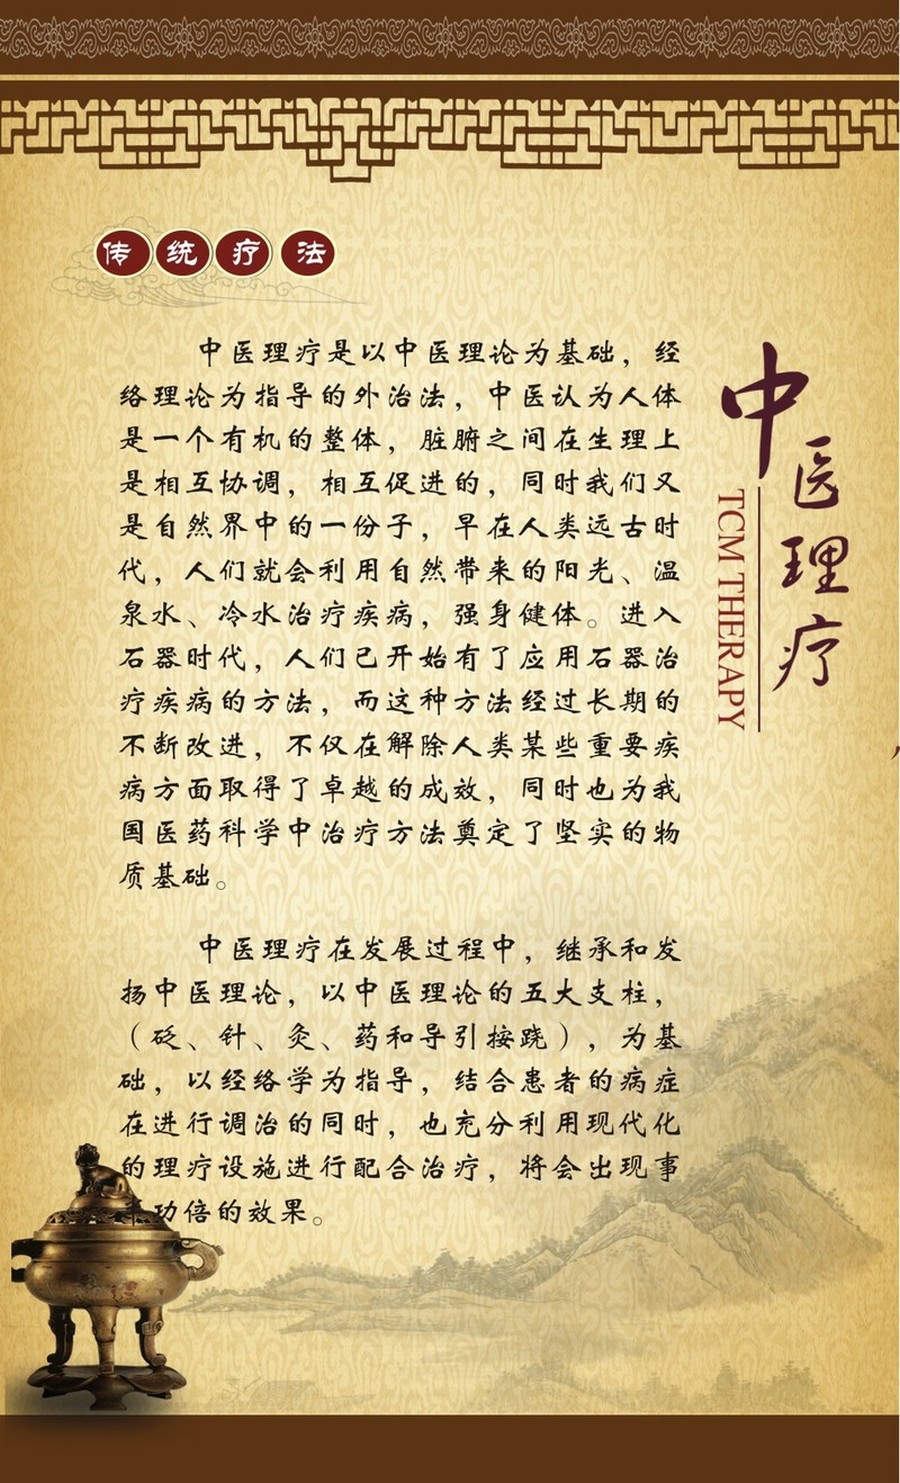 传统疗法
中医理疗是以中医理论为基础，经
络理论为指导的外治法，中医认为人体
是一个有机的整体，脏腑之间在生理上
是相互协调，相互促进的，同时我们又
是自然界中的一份子，早在人类远古时
代，人们就会利用自然带来的阳光、温
泉水、冷水治疗疾病，强身健体。进入
石器时代，人们已开始有了应用石器治
疗疾病的方法，而这种方法经过长期的
不断改进，不仅在解除人类某些重要疾
病方面取得了卓越的成效，同时也为我
国医药科学中治疗方法奠定了坚实的物
质基础。
中医理疗在发展过程中，继承和发
扬中医理论，以中医理论的五大支柱，
（砭、针、灸、药和导引按跷），为基
础，以经络学为指导，结合患者的病症
在进行调治的同时，也充分利用现代化
的理疗设施进行配合治疗，将会出现事
半功倍的效果。
中医理疗
TCM THERAPY